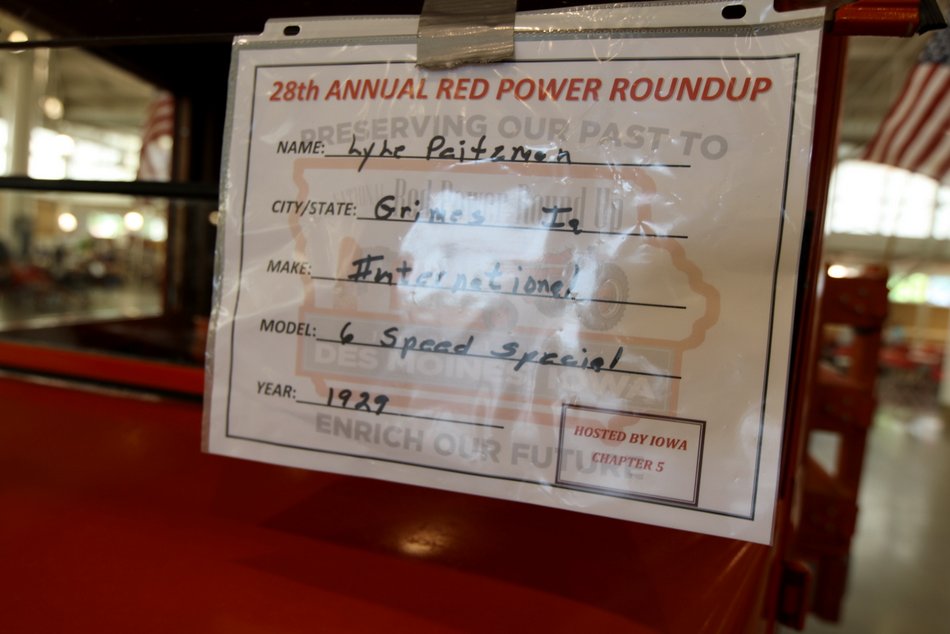 28th ANNUAL RED POWER ROUNDUP
PRESERVING OUR PAST TO
NAME: Lyle Paitzman
Red Power Round Up
CITY/STATE: Grimes Ia
MAKE: International
MODEL: 6 Speed Special
DES MOINES, IOWA
YEAR: 1929
ENRICH OUR FUTURE
HOSTED BY IOWA
CHAPTER 5